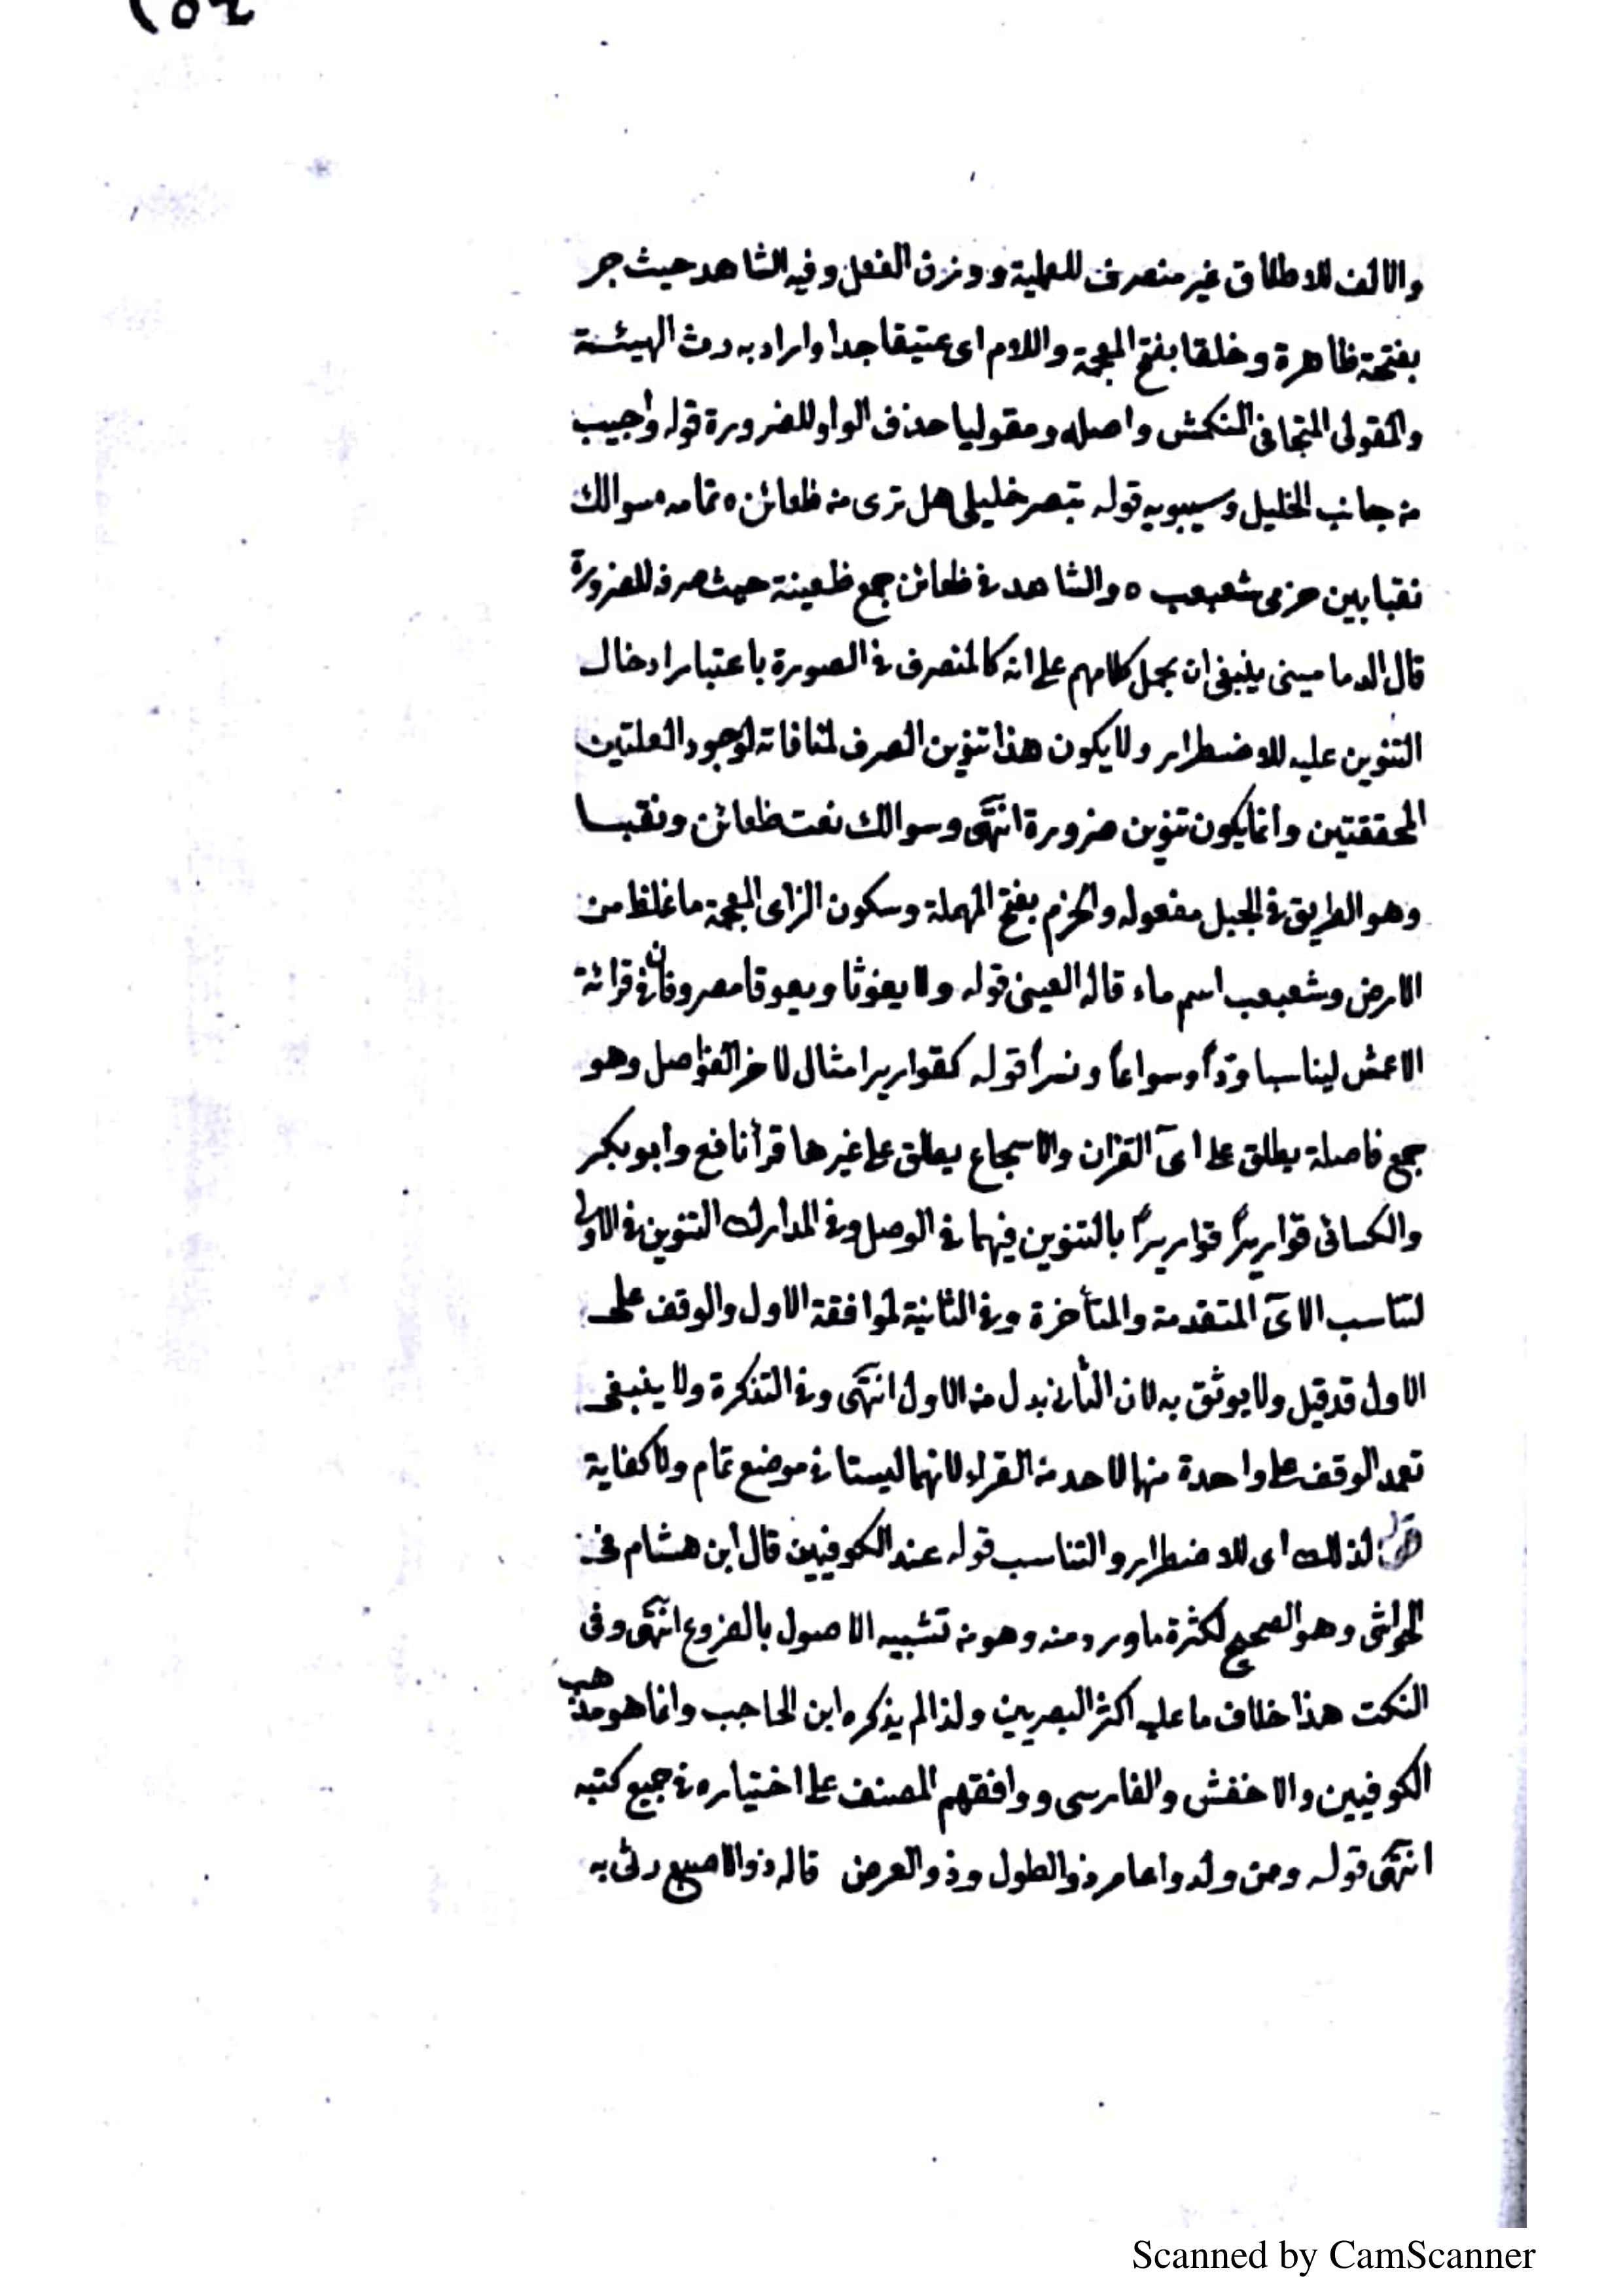 والالف للاطلاق غير منصرف للعلمية ووزن الفعل وفيه الشاهد حيث جر
بفتحة ظاهرة وخلقا بفتح المعجمة واللام اى عتيقا جدا واراد به رث الهيئة
والمقولى المتجافى المنكمش واصله ومقوليا حذف الواو للضرورة قوله وأجيب
من جانب الخليل وسيبويه قوله تبصر خليلى هل ترى من ظعائن ه تمامه ه سوالك
نقبا بين حزمى شعبعب ه والشاهد فى ظعائن جمع ظعينة حيث صرف للضرورة
قال الدمامينى ينبغى ان يحمل كلامهم على انه كالمنصرف فى الصورة باعتبار ادخال
التنوين عليه للاضطرار ولا يكون هذا تنوين الصرف لمنافاته لوجود العلتين
المحققتين وانما يكون تنوين ضرورة انتهى وسوالك نعت ظعائن ونقبا
وهو الطريق فى الجبل مفعوله والحزم بفتح المهملة وسكون الزاى المعجمة ما غلظ من
الارض وشعبعب اسم ماء قاله العينى قوله ولا يغوثا ويعوقا مصروفان فى قرائة
الاعمش ليناسبا ودّاً وسواعاً ونسراً قوله كقواريرا مثال لاخر الفواصل وهو
جمع فاصلة يطلق على آى القرآن والاسجاع يطلق على غيرها قرأ نافع وأبو بكر
والكسائى قواريراً قواريراً بالتنوين فيهما فى الوصل وفى المدارك التنوين فى الاولى
لتناسب الآى المتقدمة والمتأخرة وفى الثانية لموافقة الاول والوقف على
الاول قد قيل ولا يوثق به لان الثانى بدل من الاول انتهى وفى التذكرة ولا ينبغى
تعمد الوقف على واحدة منها لاحد من القراء لانهما ليستا فى موضع تمام ولا كفاية
قوله لذلك اى للاضطرار والتناسب قوله عند الكوفيين قال ابن هشام فى
الحواشى وهو الصحيح لكثرة ما ورد منه وهو من تشبيه الاصول بالفروع انتهى وفى
النكت هذا خلاف ما عليه اكثر البصريين ولذا لم يذكره ابن الحاجب وانما هو مذهب
الكوفيين والاخفش والفارسى ووافقهم المصنف على اختياره فى جميع كتبه
انتهى قوله وممن ولدوا عامر ذو الطول وذو العرض قاله ذو الاصبع رثى به
Scanned by CamScanner